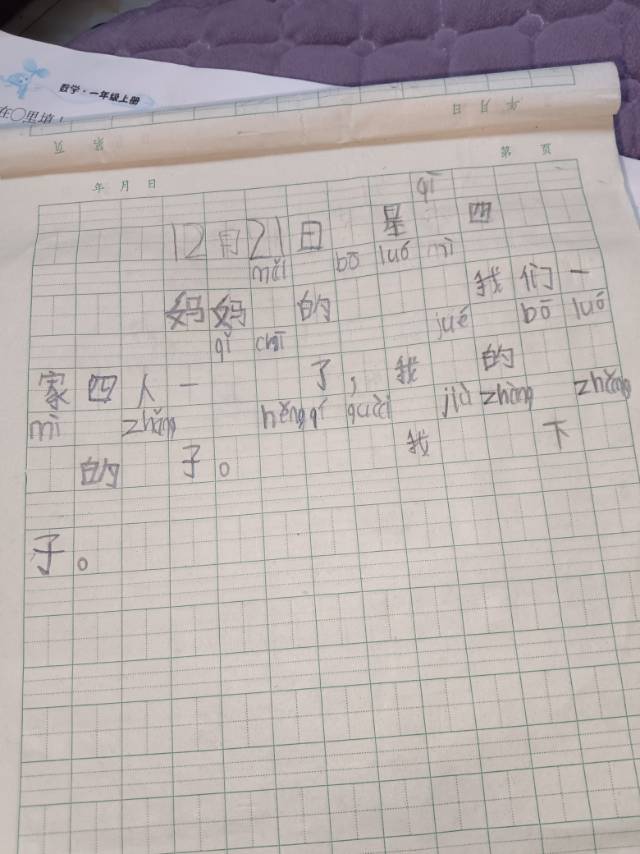 数学·一年级上册
在○里填
第 页
年 月 日
第 页
年 月 日
qī
12月21日 星 四
mǎi bō luó mì
妈妈 的 我们一
qǐ chī jué bō luó
家四人一 了，我 的
mì zhǎng hěng qí guài jiù zhòng zhǒng
的 子。 我 下
子。